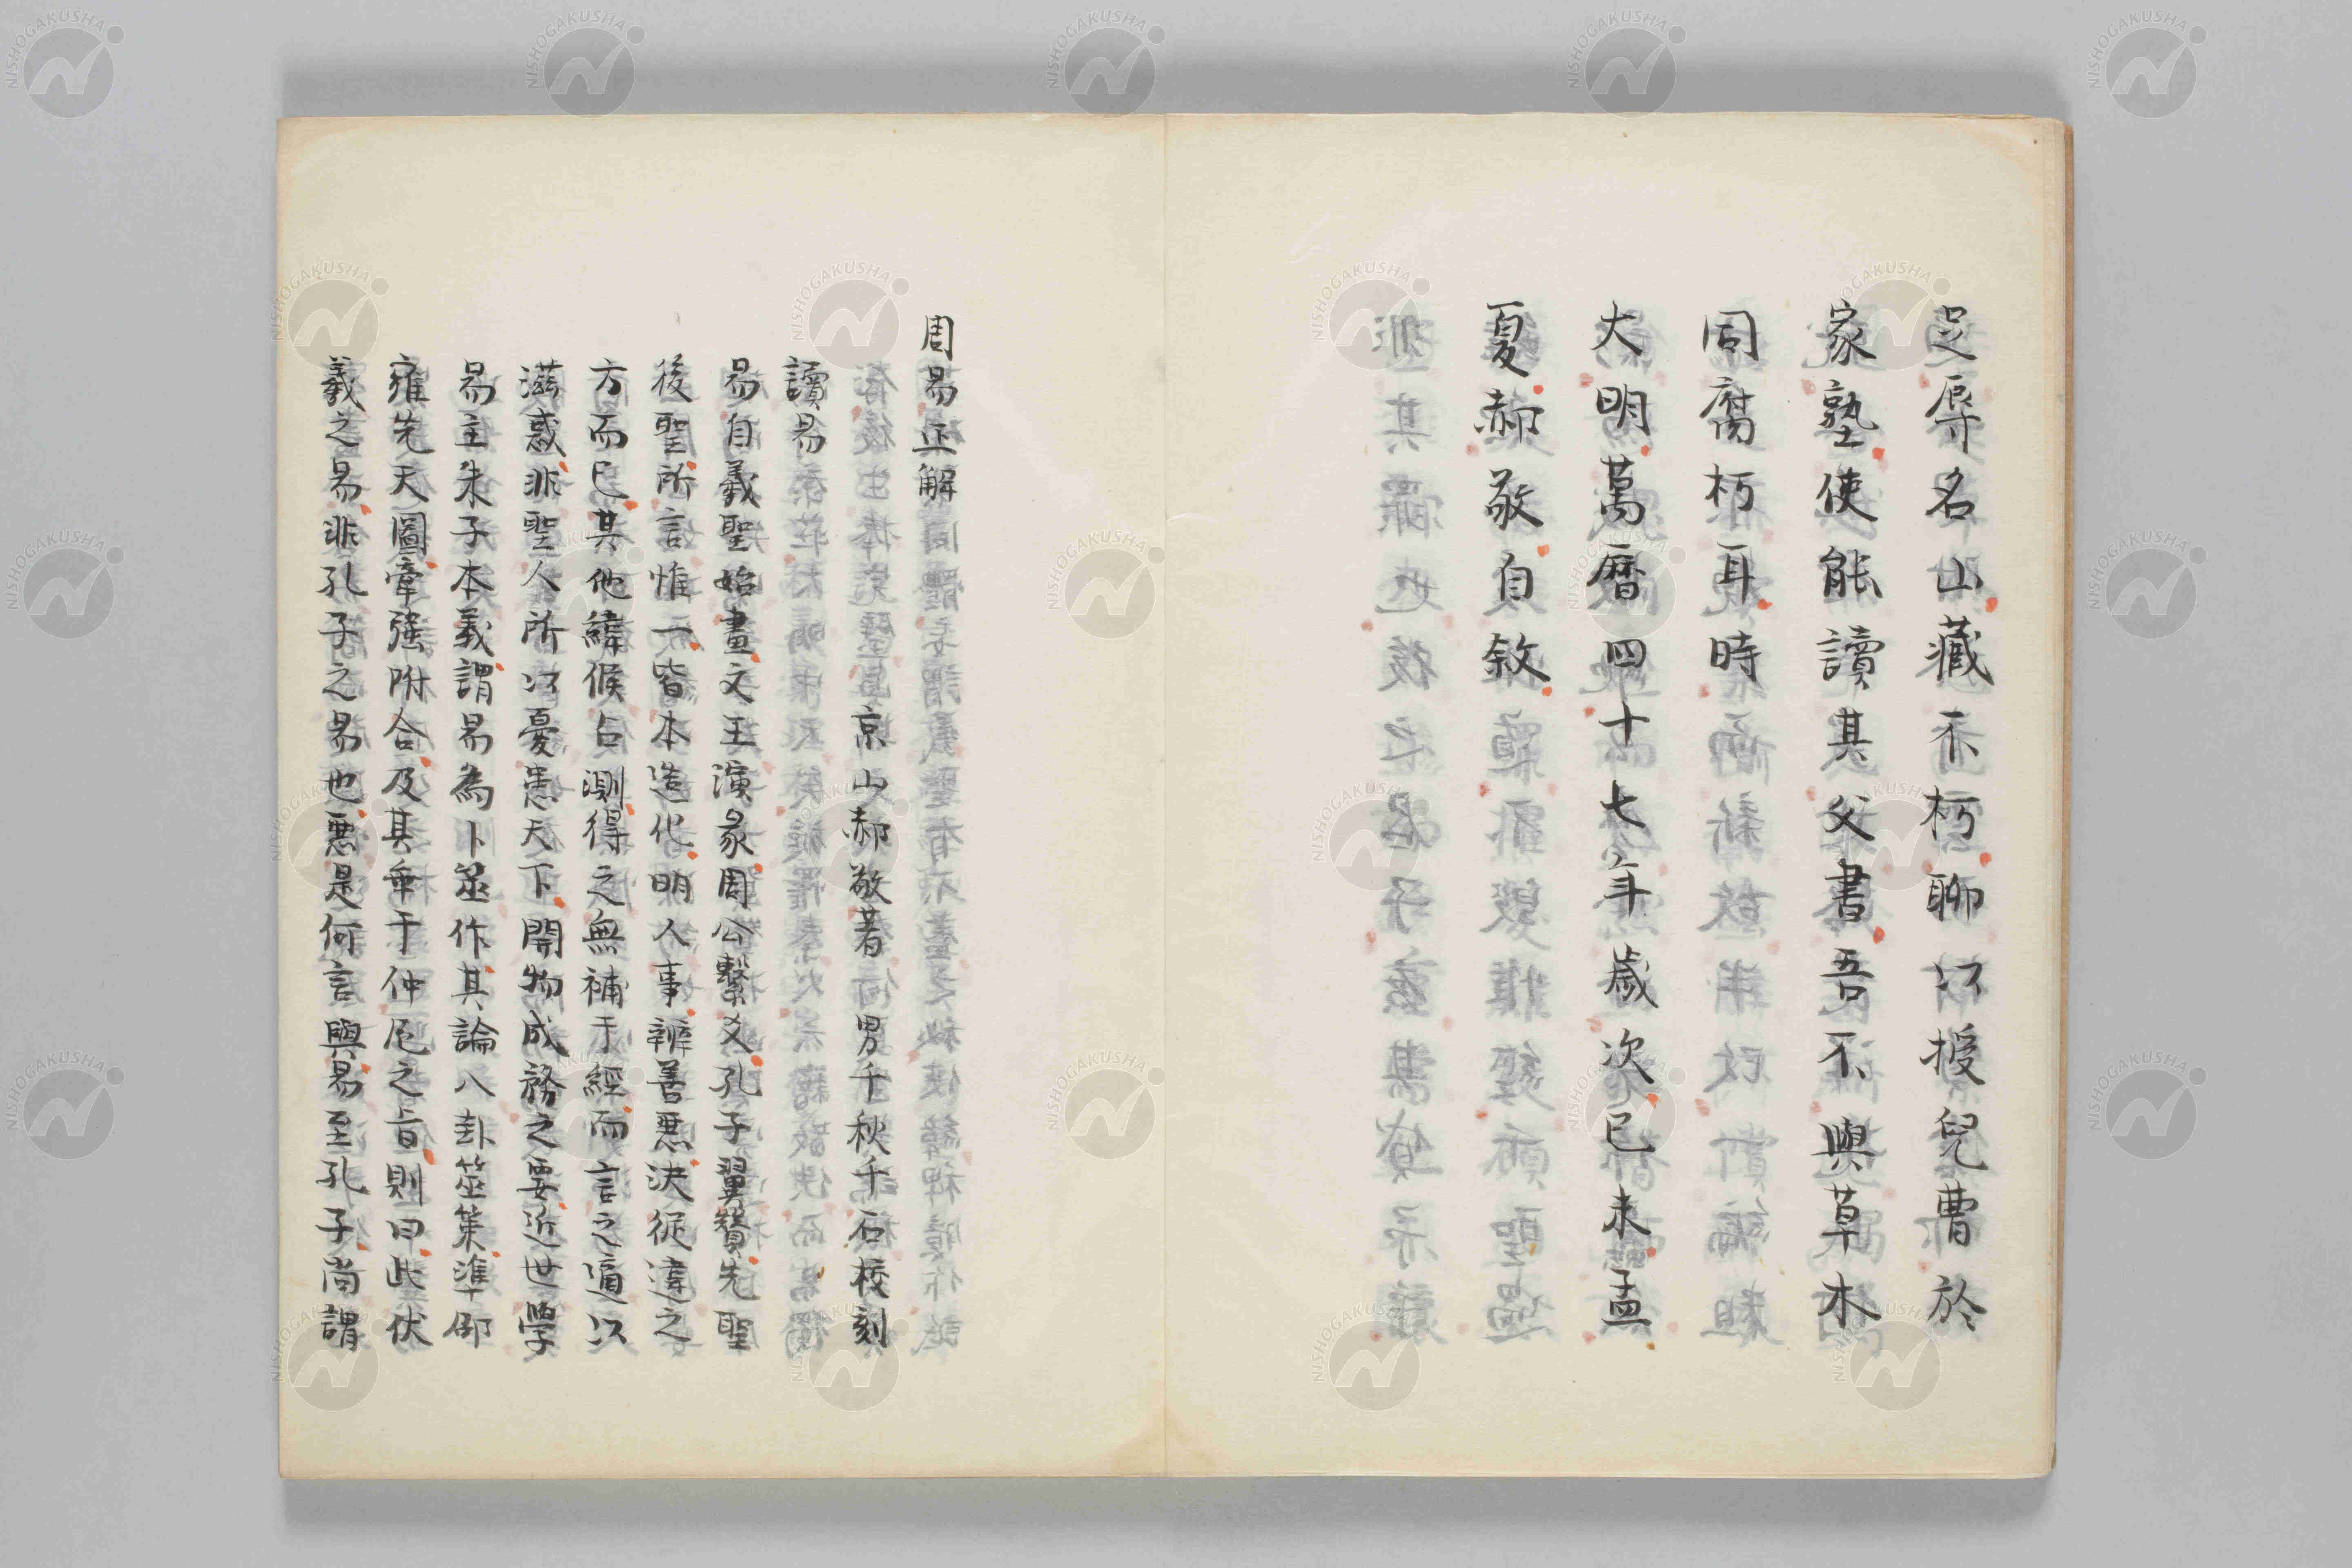 足辱名山藏不朽聊以授兒曹於
家塾使能讀其父書吾不與草木
同腐朽耳時
大明萬曆四十七年歲次己未孟
夏郝敬自敘
周易正解
京山郝敬著男千秋千石校刻
讀易
易自羲聖始畫文王演彖周公繫爻孔子翼贊先聖
後聖所言惟一皆本造化明人事辨善惡決從違之
方而已其他緯候占測得之無補于經而言之適以
滋惑非聖人所以憂患天下開物成務之要近世學
易主朱子本義謂易為卜筮作其論八卦筮策準邵
雍先天圖牽強附合及其乖于仲尼之旨則曰此伏
羲之易非孔子之易也惡是何言與易至孔子尚謂
NISHOGAKUSHA